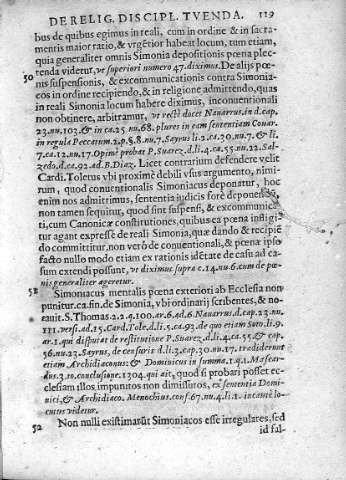 DE RELIG. DISCIPL. TVENDA. 119
bus de quibus egimus in reali, cum in ordine & in sacra-
mentis maior ratio, & vrgẽtior habeat locum, tum etiam,
quia generaliter omnis Simonia depositionis pœna plec-
50 tenda videtur, vt superiori numero 47. diximus. De alijs pœ-
nis suspensionis, & excommunicationis contra Simonia-
cos in ordine recipiendo, & in religione admittendo, quas
in reali Simonia locum habere diximus, in conuentionali
non obtinere, arbitramur, vt rectè docet Nauarrus in d. cap.
23. nu. 103. & in ca. 25 nu. 68. plures in eam sententiam Couar.
in regula Peccatum. 2. p. §. 8. nu. 7. Sayrus li. 2. ca. 20. nu. 7. & li.
7. ca. 12. nu. 17. Optimè probat P. Suarez. d. li. 4. ca. 55. nu. 12. Sal-
zedo. d. ca. 92. ad B. Diaz. Licet contrarium defendere velit
Cardi. Toletus vbi proximè debili vsus argumento, nimi-
rum, quod conuentionalis Simoniacus deponatur, hoc
enim nos admitrimus, sententia iudicis forè deponẽdũ,
non tamen sequitur, quod sint suspensi, & excommunica-
ti, cum Canonicæ constitutiones, quibus ea pœna infligi-
tur agant expressè de reali Simonia, quæ dando & recipiẽ
do committitur, non verò de conuentionali, & pœnæ ipso
facto nullo modo etiam ex rationis idẽtate de casu ad ca-
sum extendi possunt, vt diximus supra c. 14. nu. 6. cum de pœ-
nis generaliter ageretur.
51 Simoniacus mentalis pœna exteriori ab Ecclesia non
punitur. ca. fin. de Simonia, vbi ordinarij scribentes, & no-
tauit S. Thomas. 2. 2. q. 100. ar. 6. ad. 6. Nauarrus d. cap. 23. nu.
111. versi. ad. 15. Card. Tole. d. li. 5. ca. 93. de quo etiam Soto. li. 9.
ar. 1. qui disputat de restitutione P. Suarez. d. li. 4. ca. 55. & cap.
56. nu. 23. Sayrus, de censuris d. li. 3. cap. 30. nu. 17. tradiderunt
etiam, Archidiaconus: & Dominicus in summa. 14. 1. Mascar-
dus. 3. to. conclusione. 1304. qui ait, quod si probari posset ec-
clesiam illos impunitos non dimissuros, ex sententia Domi-
nici, & Archidiaco. Menochius conf. 67. nu. 4. li. 1. in eamẽ lo-
cutus videtur.
52 Non nulli existimarũt Simoniacos esse irregulares, sed
id fal-